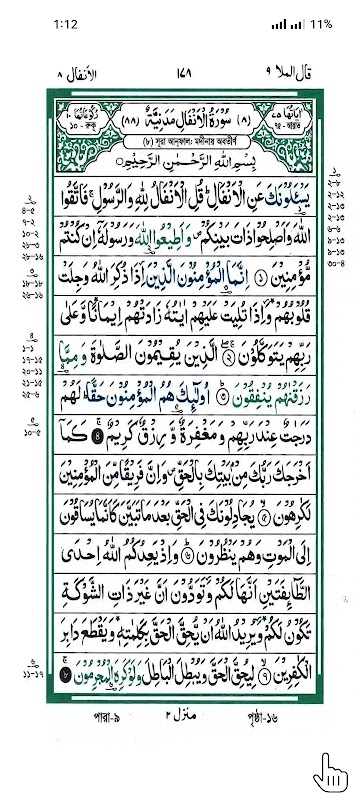 1:12 11%
الانفال ٨ ١٧٨ قال الملا ٩
اٰیَاتُهَا ٧٥ (٨) سُوْرَةُ الْاَنْفَالِ مَدَنِیَّةٌ (٨٨) رُكُوْعَاتُهَا ١٠
৭৫- আয়াত (৮) সূরা আনফাল: মদীনায় অবতীর্ণ ১০- রুকু
بِسْمِ اللّٰهِ الرَّحْمٰنِ الرَّحِیْمِ
یَسْـَٔلُوْنَكَ عَنِ الْاَنْفَالِ ؕ قُلِ الْاَنْفَالُ لِلّٰهِ وَالرَّسُوْلِ ۚ فَاتَّقُوا
اللّٰهَ وَاَصْلِحُوْا ذَاتَ بَیْنِكُمْ ۪ وَاَطِیْعُوا اللّٰهَ وَرَسُوْلَهٗۤ اِنْ كُنْتُمْ
مُّؤْمِنِیْنَ ۝ اِنَّمَا الْمُؤْمِنُوْنَ الَّذِیْنَ اِذَا ذُكِرَ اللّٰهُ وَجِلَتْ
قُلُوْبُهُمْ وَاِذَا تُلِیَتْ عَلَیْهِمْ اٰیٰتُهٗ زَادَتْهُمْ اِیْمَانًا وَّعَلٰی
رَبِّهِمْ یَتَوَكَّلُوْنَ ۝ الَّذِیْنَ یُقِیْمُوْنَ الصَّلٰوةَ وَمِمَّا
رَزَقْنٰهُمْ یُنْفِقُوْنَ ۝ اُولٰٓئِكَ هُمُ الْمُؤْمِنُوْنَ حَقًّا ؕ لَهُمْ
دَرَجٰتٌ عِنْدَ رَبِّهِمْ وَمَغْفِرَةٌ وَّرِزْقٌ كَرِیْمٌ ۝ كَمَاۤ
اَخْرَجَكَ رَبُّكَ مِنْۢ بَیْتِكَ بِالْحَقِّ ۪ وَاِنَّ فَرِیْقًا مِّنَ الْمُؤْمِنِیْنَ
لَكٰرِهُوْنَ ۝ یُجَادِلُوْنَكَ فِی الْحَقِّ بَعْدَ مَا تَبَیَّنَ كَاَنَّمَا یُسَاقُوْنَ
اِلَی الْمَوْتِ وَهُمْ یَنْظُرُوْنَ ۝ وَاِذْ یَعِدُكُمُ اللّٰهُ اِحْدَی
الطَّآئِفَتَیْنِ اَنَّهَا لَكُمْ وَتَوَدُّوْنَ اَنَّ غَیْرَ ذَاتِ الشَّوْكَةِ
تَكُوْنُ لَكُمْ وَیُرِیْدُ اللّٰهُ اَنْ یُّحِقَّ الْحَقَّ بِكَلِمٰتِهٖ وَیَقْطَعَ دَابِرَ
الْكٰفِرِیْنَ ۝ لِیُحِقَّ الْحَقَّ وَیُبْطِلَ الْبَاطِلَ وَلَوْ كَرِهَ الْمُجْرِمُوْنَ ۝
পারা-৯ منزل ٢ পৃষ্ঠা-১৬